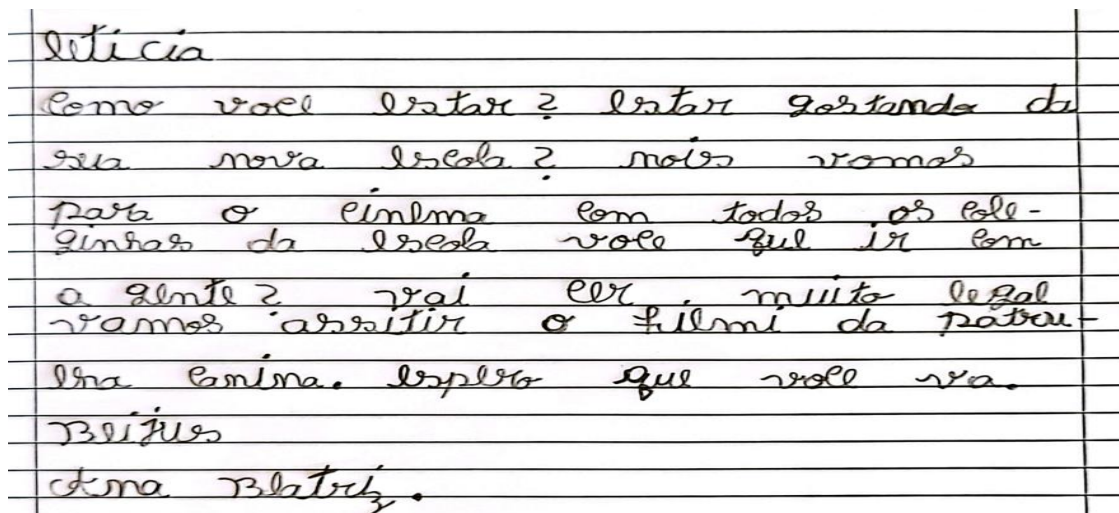 leticia
Como voce estar? estar gostando da
sua nova escola? nois vomos
para o cinema com todos os cole-
ginhas da escola voce que ir com
a gente? vai cer muito legal
vamos assitir o filmi da patru-
lha canina. espero que voce va.
Beijus
Ana Beatriz.